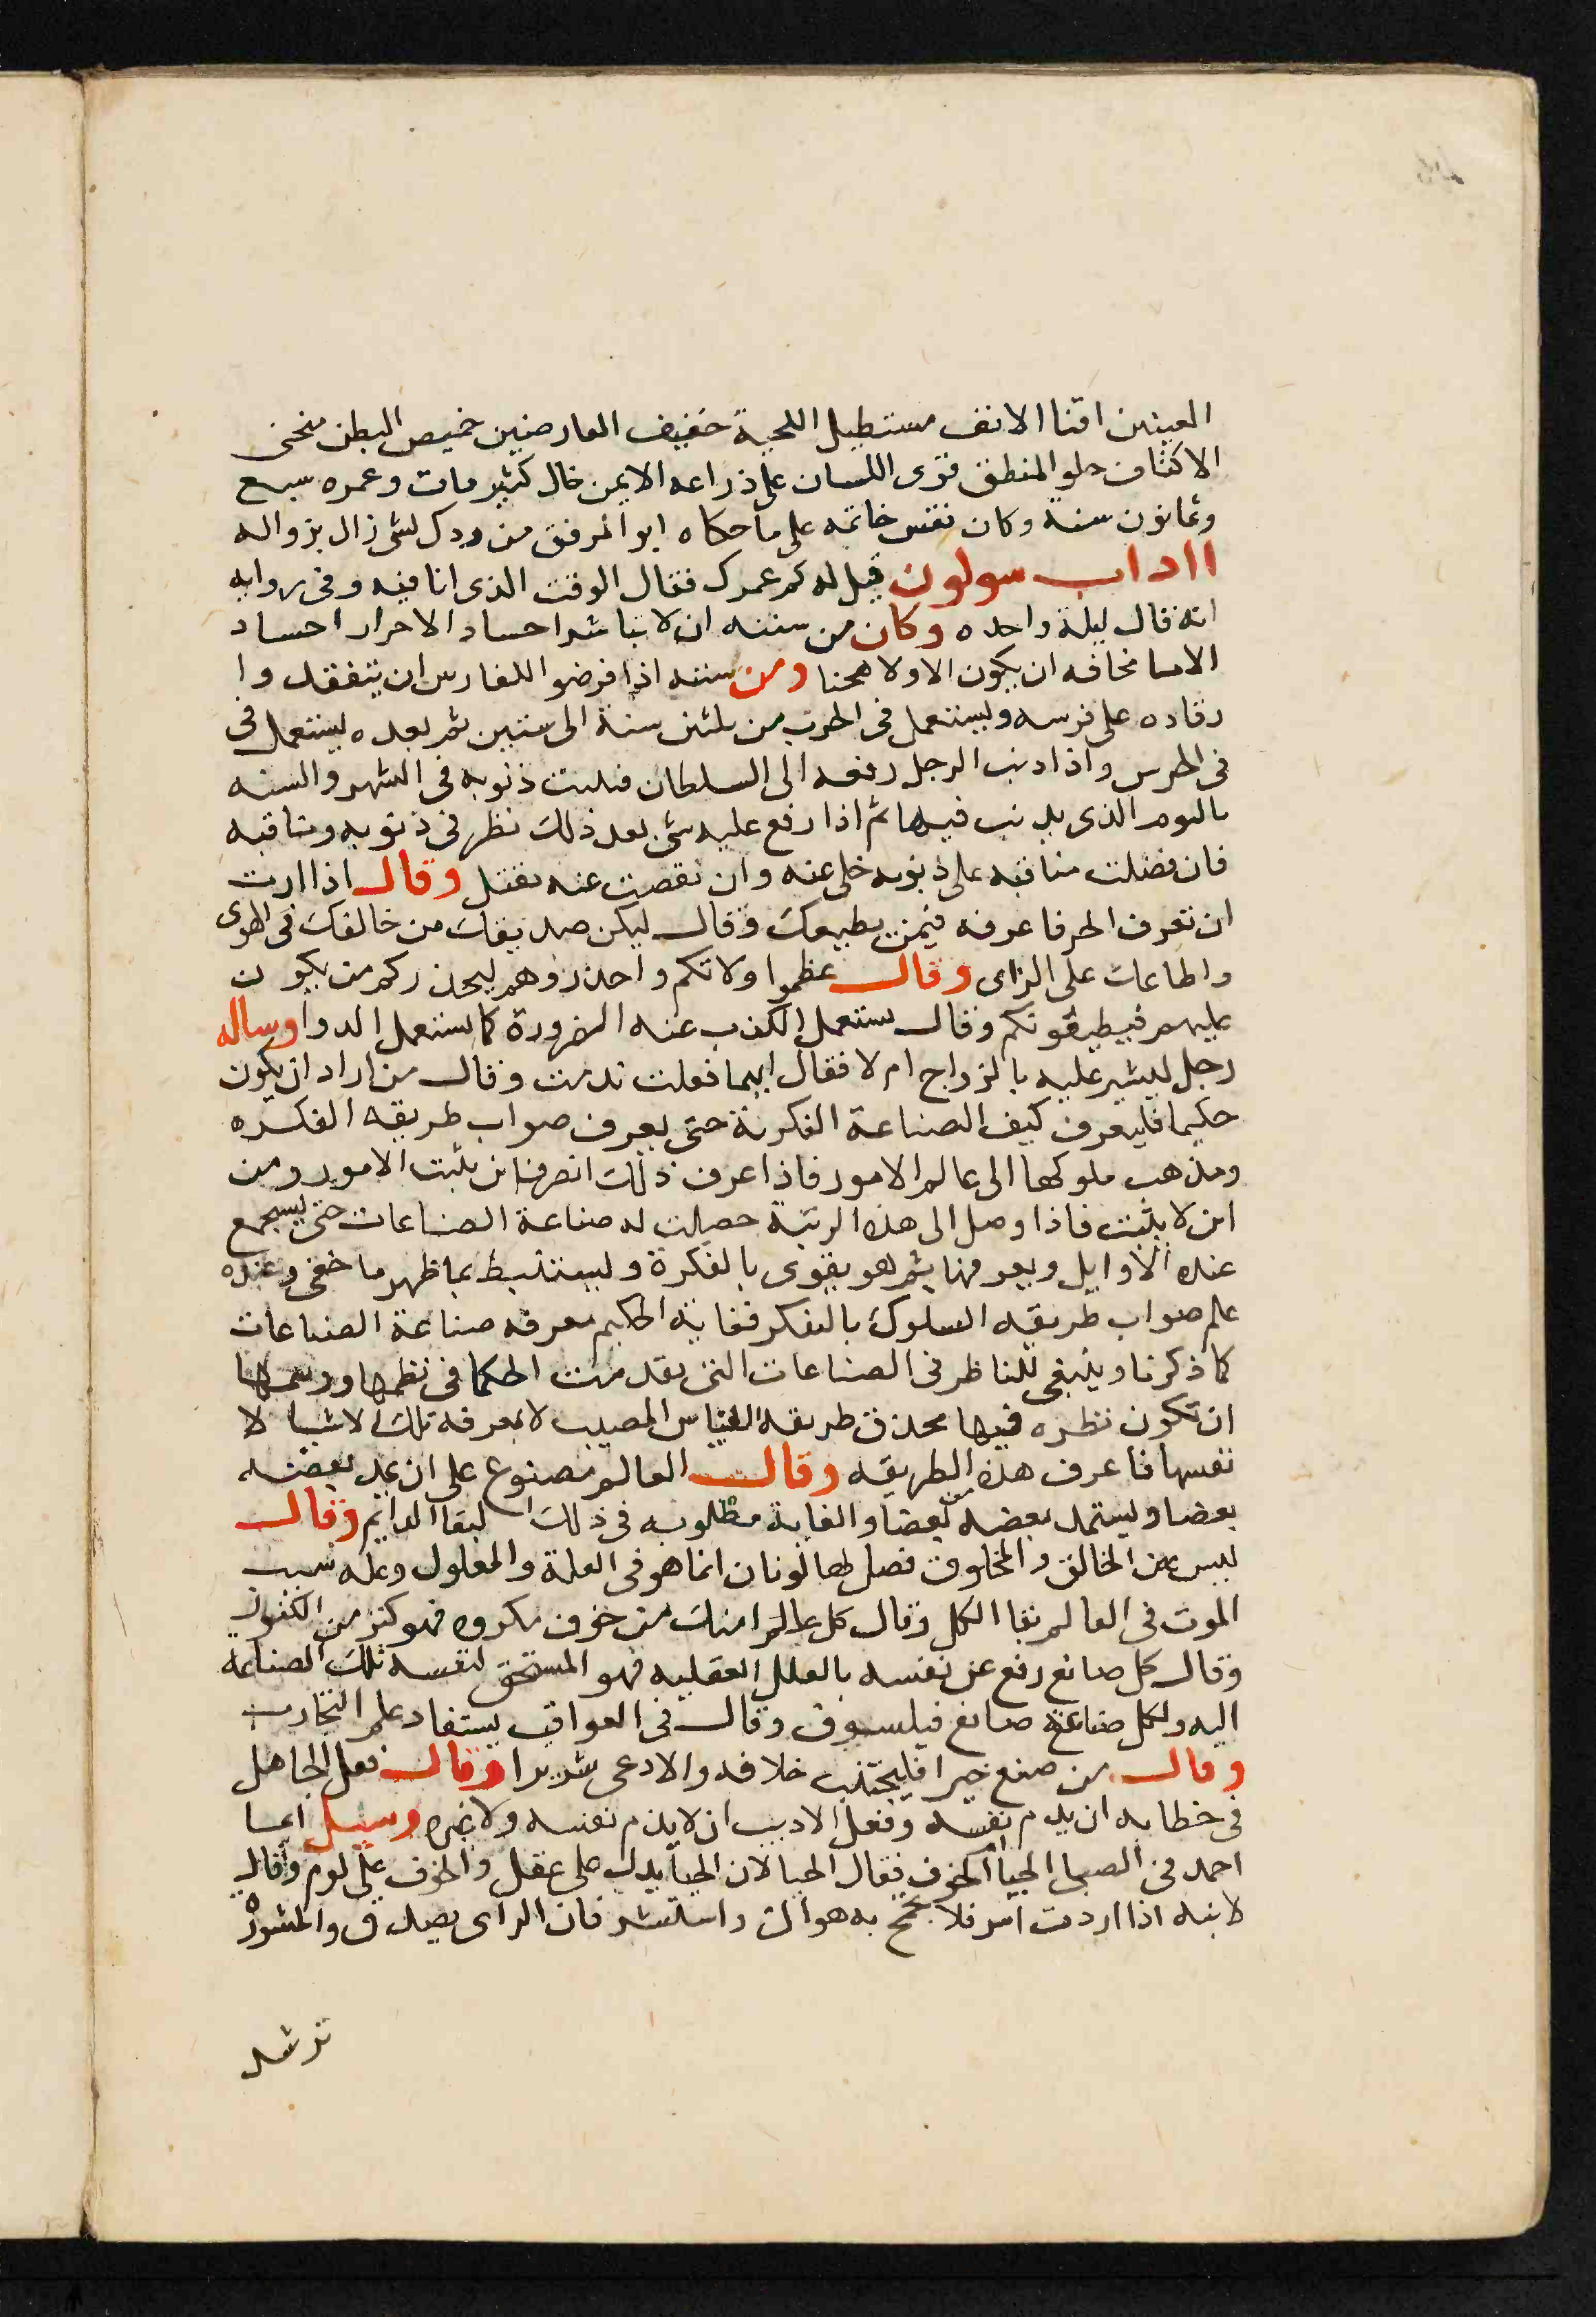 العينين اقنا الانف مستطيل اللحية خفيف العارضين خميص البطن منحنى
الاكتاف حلو المنطق قوى اللسان على ذراعه الايمن خال كثير مات وعمره سبع
وثمانون سنة وكان نقس خاتمه على ما حكاه ابو المرفق من ودك لشى زال بزواله
ااداب سولون قيل له كم عمرك فقال الوقت الذى انا فيه وفى روايه
انه قال ليلة واحده وكان من سننه ان لا تباشر احساد الاحرار احساد
الاما مخافه ان يكون الاولا هجنا ومن سننه اذا فرضوا للفارس ان يتفقدوا
رقاده على فرسه ويستعمل فى الحرب من ثلثين سنة الى ستين ثم بعده يستعمل فى
فى الحرس واذا ادنب الرجل رفعه الى السلطان فىلبت ذنوبه فى الشهر والسنه
باليوم الذى يدنب فيها ثم اذا رفع عليه شى بعد ذلك نظر فى ذنوبه ومناقبه
فان فضلت مناقبه على ذنوبه خلى عنه وان نقصت عنه نقتل وقال اذا ارت
ان تعرف الحر فاعرفه فيمن يطيعك وقال ليكن صديقك من خالفك فى الهوى
واطاعك على الراى وقال عظموا ولاتكم واحذروهم ليحذركم من يكون
عليهم فيطيقونكم وقال يستعمل الكذب عنه الضرورة كما يستعمل الدوا وساله
رجل ليشير عليه بالزواج ام لا فقال ايهما فعلت ندمت وقال من اراد ان يكون
حكيما فليعرف كيف الصناعة الفكرية حتى يعرف صواب طريقه الفكره
ومذهب ملوكها الى عالم الامور فاذا عرف ذلك انصرف اين يثبت الامور ومن
اين لا يثبت فاذا وصل الى هذه الرتبة حصلت له صناعة الصناعات حتى يسجمع
عنده الاوايل ويعرفها ثم هو يقوى بالفكرة وليستنبط بما ظهر ما خفى وعنده
علم صواب طريقه السلوك بالفكر فغاية الحكيم معرفه صناعة الصناعات
كما ذكرنا وينبغى للناظر فى الصناعات التى تقدمت الحكما فى نظمها ورسمها
ان تكون نظره فيها محذق طريقه القياس المصيب لا بمعرفه تلك الاشيا لا
نفسها فاعرف هذه الطريقه وقال العالم مصنوع على ان يمد بعضه
بعضا وليستمد بعضه من بعضا والغاية مطلوبه فى ذلك لبقا الدايم وقال
ليس بين الخالق والمخلوق فصل لها لونان انما هو فى العلة والمعلول وعله سبب
الموت فى العالم بقا الكل وقال كل عالم امنك من خوف مكروه فهو كنز من الكنوز
وقال كل صانع رفع عن نفسه بالعلل العقليه فهو المستحق لنفسه تلك الصناعة
اليه ولكل صناعة صانع فيلسوف وقال فى العواقب يستفاد علم التجارب
وقال من صنع خيرا فليجتنب خلافه والا دعى شريرا وقال فعل الجاهل
فى خطابه ان يدم نفسه وفعل الاديب ان لا يذم نفسه ولا غيره وسيل ايما
احمد فى الصبى الحيا ام الخوف فقال الحيا لان الحيا يدل على عقل والخوف على لوم وقال
لابنه اذا اردت امر فلا به هواك واستشر فان الراى يصدق والمشوره
ترشد